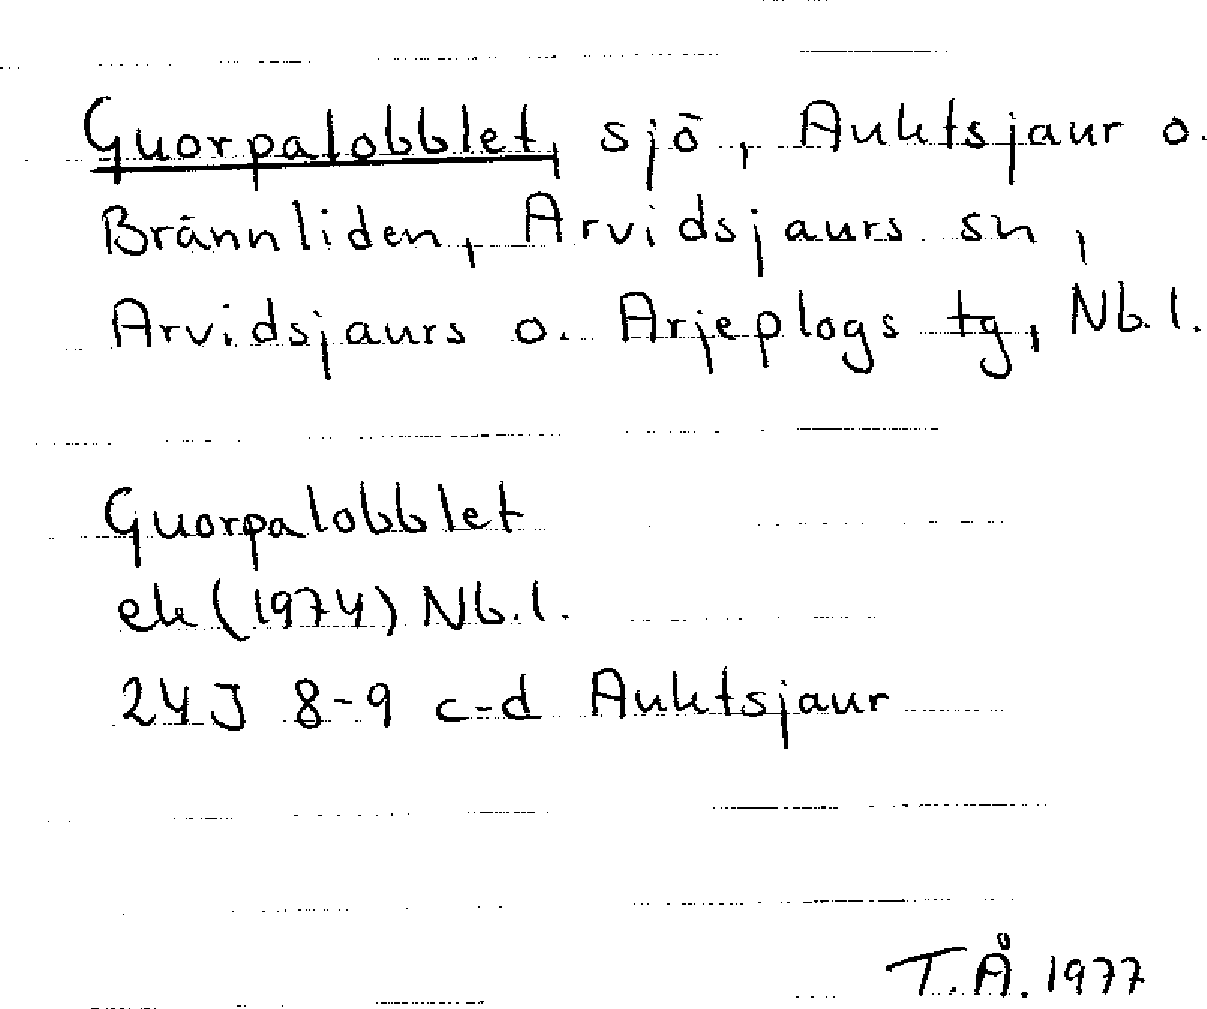 Guorpalobblet, sjö, Auktsjaur o.
Brännliden, Arvidsjaurs sn,
Arvidsjaurs o. Arjeplogs tg, Nb.l.
Guorpalobblet
ek (1974) Nb.l.
24J 8-9 c-d Auktsjaur
T.Å. 1977